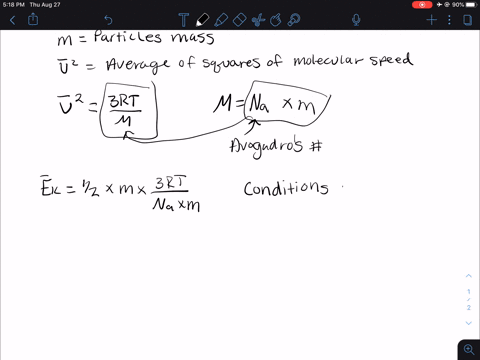 5:18 PM Thu Aug 27
90%
m = Particles mass
ū² = Average of squares of molecular speed
ū² = 3RT / M
M = Na × m
Avogadro's #
Ēk = 1/2 × m × 3RT / Na × m
Conditions
1
/
2